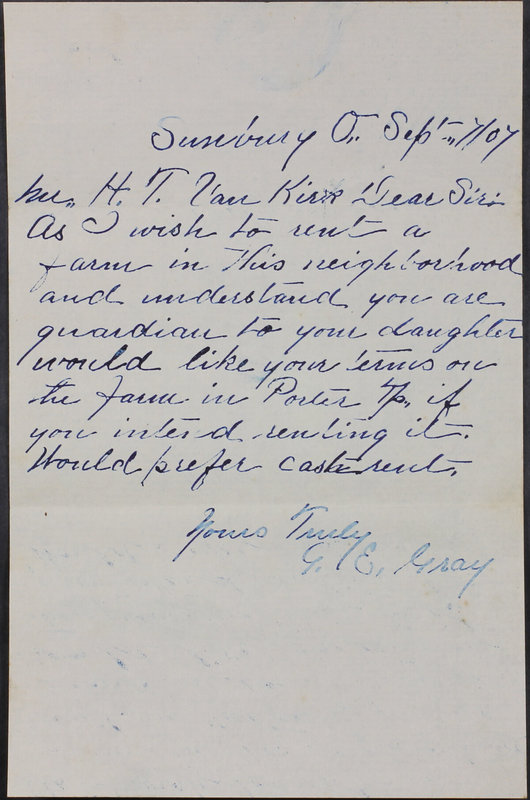 Sunbury O. Sept., 7/07
Mr., H. T. Van Kirk Dear Sir:
As I wish to rent a
farm in this neighborhood
and understand you are
guardian to your daughter
would like your terms on
the farm in Porter Tp., if
you intend renting it.
Would prefer cash rent.
Yours Truly
G. E. Gray